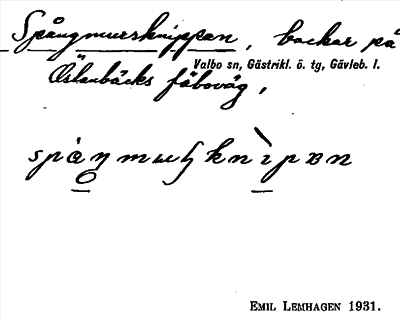 Spångmursknippan, backar på
Valbo sn, Gästrikl. ö. tg, Gävleb. l.
Östanbäcks fäboväg,
EMIL LEMHAGEN 1931.